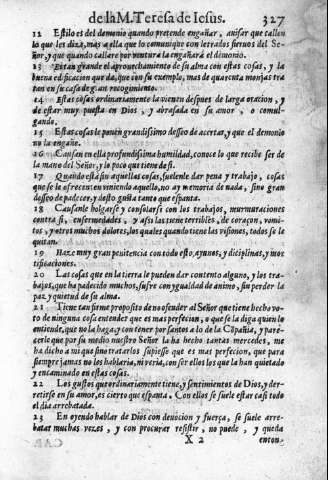 de la M. Teresa de Iesus. 327
12 Estilo es del demonio quando pretende engañar, auisar que callen
lo que les dize, mas a ella que lo comunique con letrados sieruos del Se-
ñor, y que quando callare por ventura la engañará el demonio.
13 Es tan grande el aprouechamiento de su alma con estas cosas, y la
buena edificacion que da, que con su exemplo, mas de quarenta monjas tra
tan en su casa de gran recogimiento.
14 Estas cosas ordinariamente la vienen despues de larga oracion, y
de estar muy puesta en Dios, y abrasada en su amor, o comul-
gando.
15 Estas cosas le ponen grandissimo desseo de acertar, y que el demonio
no la engañe.
16 Causan en ella profundissima humildad, conoce lo que recibe ser de
la mano del Señor, y lo poco que tiene de si.
17 Quando està sin aquellas cosas, suelenle dar pena y trabajo, cosas
que se le ofrecen: en viniendo aquello, no ay memoria de nada, sino gran
desseo de padecer, y desto gusta tanto que espanta.
18 Causanle holgarse y consolarse con los trabajos, murmuraciones
contra si, enfermedades, y assi las tiene terribles, de coraçon, vomi-
tos, y otros muchos dolores, los quales quando tiene las visiones, todos se le
quitan.
19 Haze muy gran penitencia con todo esto, ayunos, y diciplinas, y mor
tificaciones.
20 Las cosas que en la tierra le pueden dar contento alguno, y los tra-
bajos, que ha padecido muchos, sufre con ygualdad de animo, sin perder la
paz, y quietud de su alma.
21 Tiene tan firme proposito de no ofender al Señor que tiene hecho vo-
to de ninguna cosa entender que es mas perfecion, o que se la diga quien lo
entiende, que no la haga, y con tener por santos a lo de la Cõpañia, y pare-
cerle que por su medio nuestro Señor la ha hecho tantas mercedes, me
ha dicho a mi que sino tratarlos supiesse que es mas perfecion, que para
siempre jamas no los hablaria, ni veria, con ser ellos los que la han quietado
y encaminado en estas cosas.
22 Los gustos que ordinariamente tiene, y sentimientos de Dios, y der-
retirse en su amor, es cierto que espanta. Con ellos se suele estar casi todo
el dia arrebatada.
23 En oyendo hablar de Dios con deuocion y fuerça, se suele arre-
batar muchas vezes, y con procurar resistir, no puede, y queda
X 2 enton-